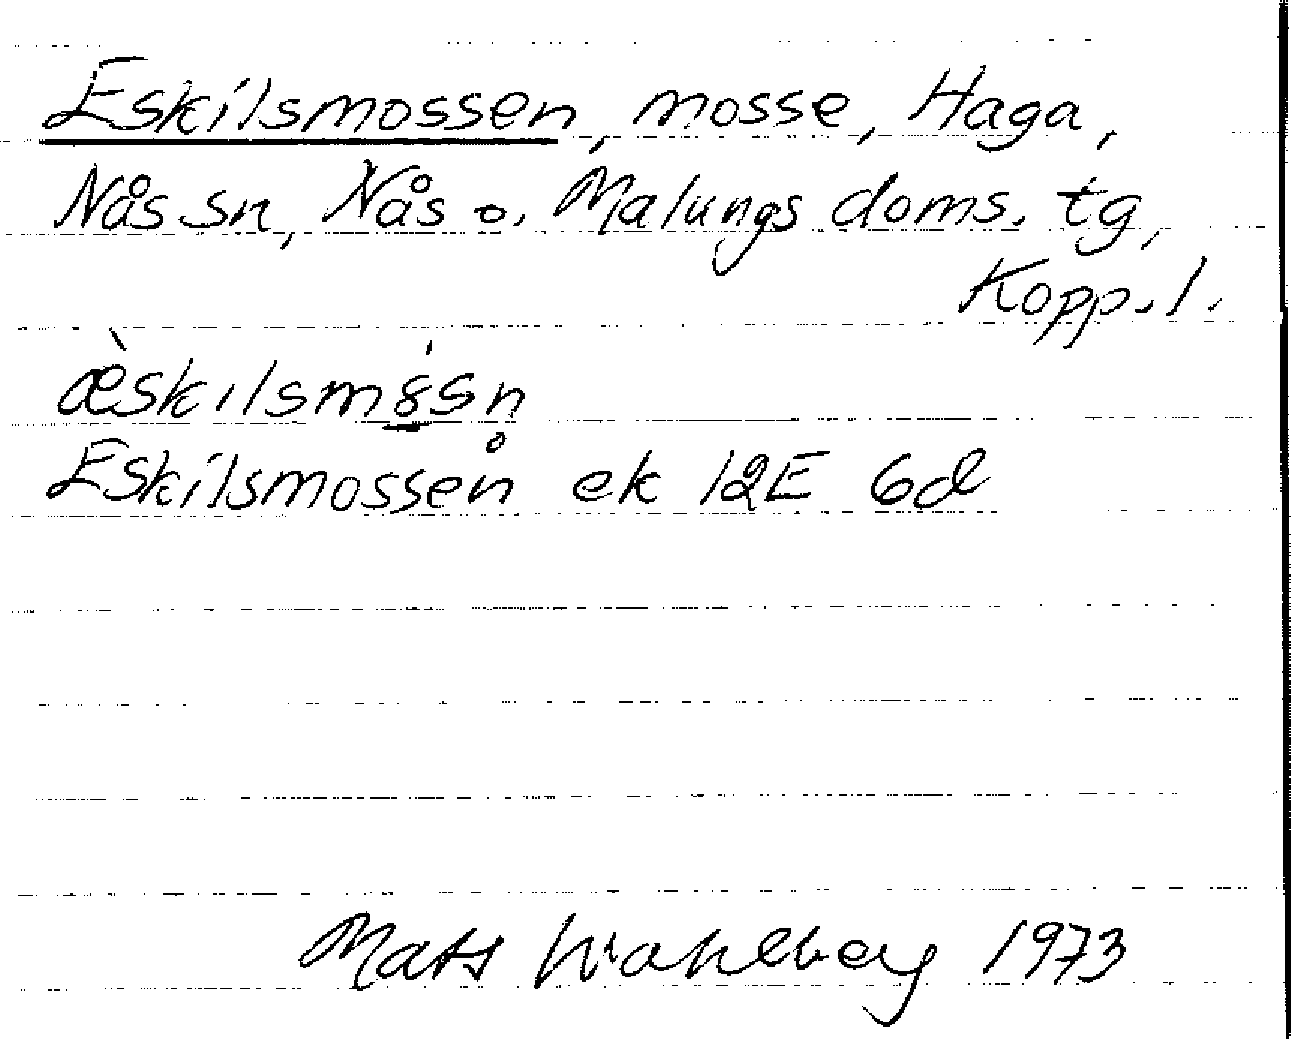 Eskilsmossen, mosse, Haga,
Nås sn, Nås o. Malungs doms. tg,
Kopp. l.
æ̀skılsm8̠̍sn̥
Eskilsmossen ek 12E 6d
Mats Wahlberg 1973